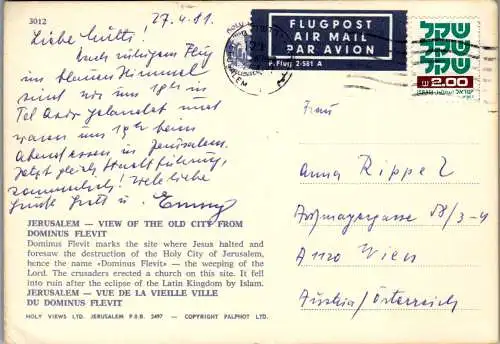 3012
27.4.81.
Liebe Mutti!
Nach ruhigem Flug
im blauen Himmel
sind wir um 18h in
Tel Aviv gelandet und
waren um 19h beim
Abendessen in Jerusalem.
Jetzt gleich Stadtführung,
Viele liebe
Grüße
JERUSALEM — VIEW OF THE OLD CITY FROM
DOMINUS FLEVIT
Dominus Flevit marks the site where Jesus halted and
foresaw the destruction of the Holy City of Jerusalem,
hence the name «Dominus Flevit» — the weeping of the
Lord. The crusaders erected a church on this site. It fell
into ruin after the eclipse of the Latin Kingdom by Islam.
JERUSALEM — VUE DE LA VIEILLE VILLE
DU DOMINUS FLEVIT
HOLY VIEWS LTD. JERUSALEM P.O.B. 2497 — COPYRIGHT PALPHOT LTD.
FLUGPOST
AIR MAIL
PAR AVION
P. Flug 2-581 A
שקל
שקל
שקל
2.00
ישראל ISRAEL
Frau
Anna Rippel
58/3-4
A 1120 Wien
Austria/Österreich